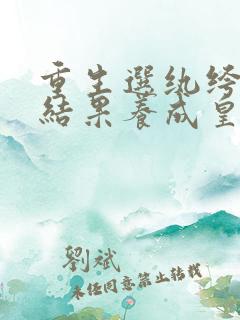 重生選紈絝
結果養成皇
劉斌
未经同意禁止转载